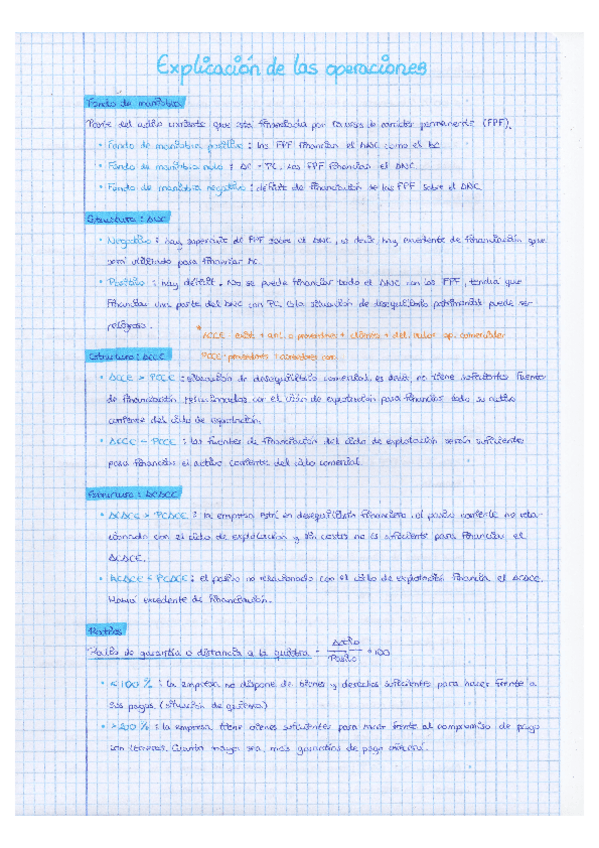 Explicación de las operaciones
Fondo de maniobra
Parte del activo corriente que está financiada por recursos de carácter permanente (FPF).
• Fondo de maniobra positivo: las FPF financian el ANC como el AC
• Fondo de maniobra nulo: AC = PC. Las FPF financian el ANC.
• Fondo de maniobra negativo: déficit de financiación de las FPF sobre el ANC
Estructura: ANC
• Negativo: hay superávit de FPF sobre el ANC, es decir, hay excedente de financiación que
será utilizado para financiar AC.
• Positivo: hay déficit. No se puede financiar todo el ANC con las FPF, tendrá que
financiar una parte del ANC con PC. Esta situación de desequilibrio patrimonial puede ser
peligrosa.
* ACCE exist + ant. a proveedores + clientes + deudor op. comerciales
PCCE = proveedores + acreedores com.
Estructura: ACCE
• ACCE > PCCE: situación de desequilibrio comercial, es decir, no tiene suficientes fuentes
de financiación relacionadas con el ciclo de explotación para financiar todo su activo
corriente del ciclo de explotación.
• ACCE = PCCE: las fuentes de financiación del ciclo de explotación serán suficientes
para financiar el activo corriente del ciclo comercial.
Estructura: ACACE
• ACACE > PCACE: la empresa está en desequilibrio financiero, el pasivo corriente no rela-
cionado con el ciclo de explotación y sin costes no es suficiente para financiar el
ACACE.
• ACACE < PCACE: el pasivo no relacionado con el ciclo de explotación financia el ACACE.
Habrá excedente de financiación.
Ratios
Ratio de garantía o distancia a la quiebra = Activo / Pasivo * 100
• < 100 %: la empresa no dispone de bienes y derechos suficientes para hacer frente a
sus pagos. (situación de quiebra)
• > 200 %: la empresa tiene bienes suficientes para hacer frente al compromiso de pago
con terceros. Cuanto mayor sea, más garantías de pago